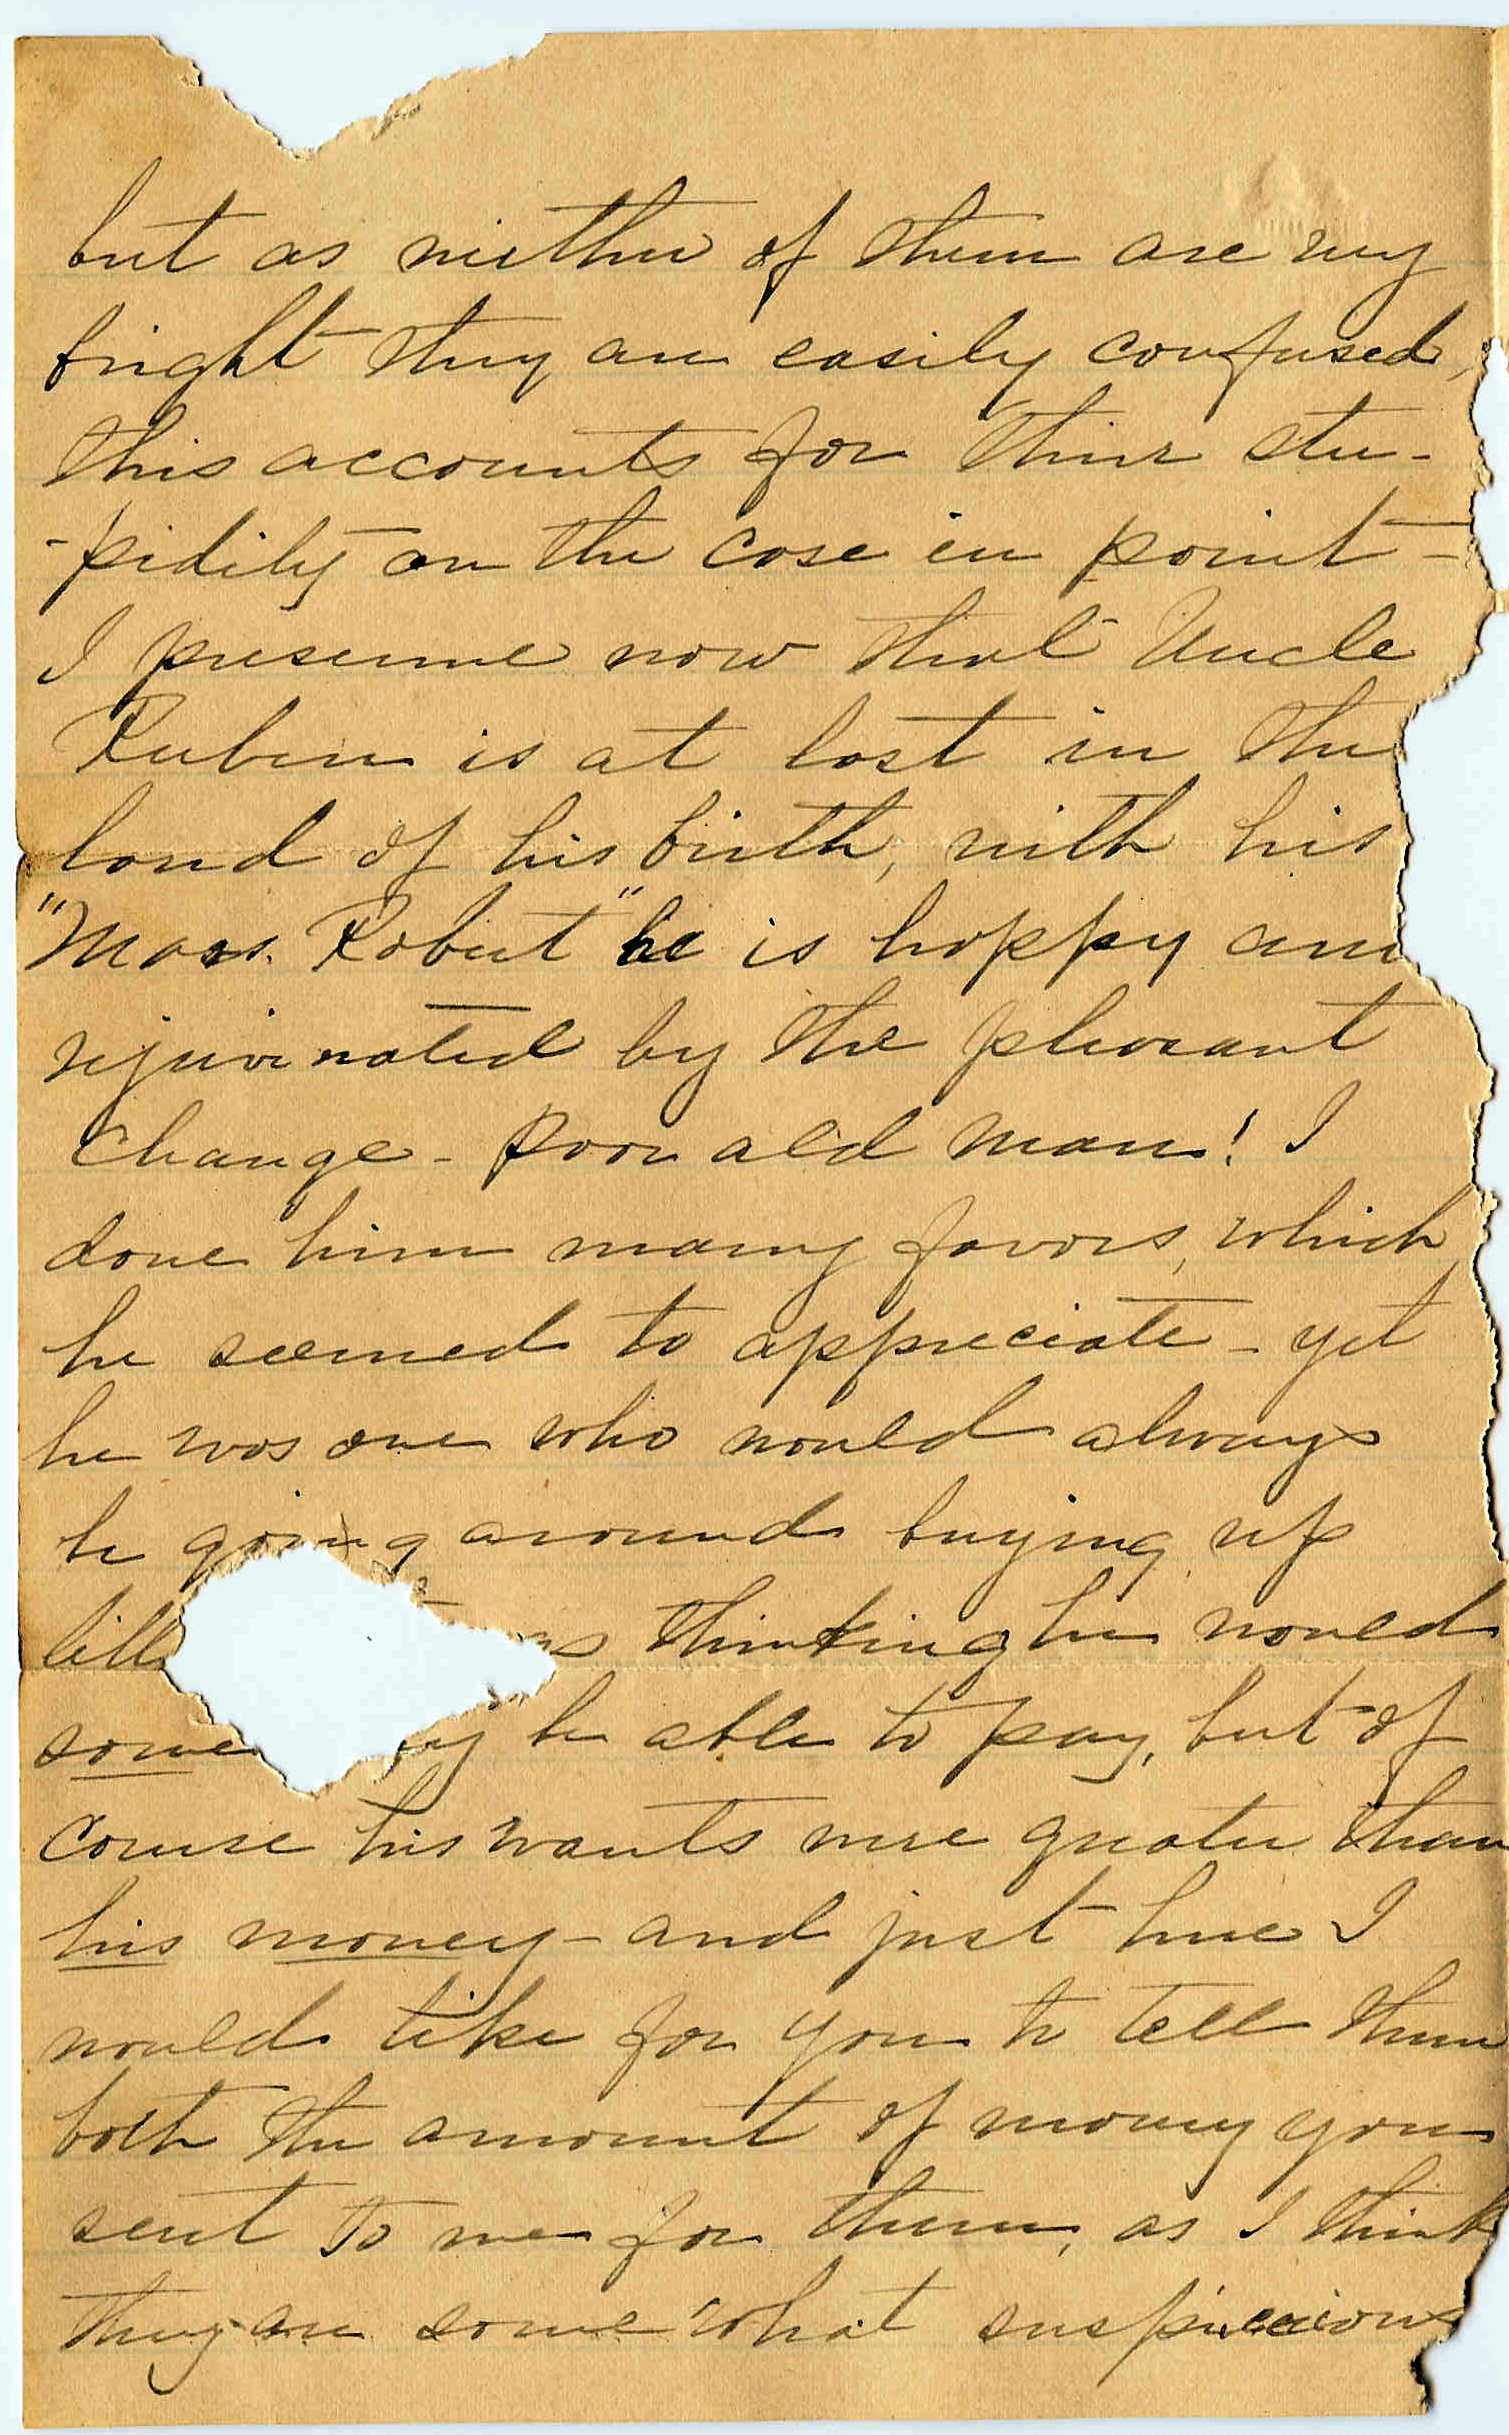 but as niether of them are very
bright they are easily confused,
this accounts for thier stu-
-pidity on the case in point -
I presume now that Uncle
Ruben is at last in the
land of his birth, with his
"Mars. Robert" he is happy and
rejuvinated by the pleasant
change - Poor old man! I
done him many favors, which
he seemed to appreciate - yet
he was one who would always
be going around buying up
thinking he would
some be able to pay, but of
course his wants were greater than
his money - and just here I
would like for you to tell them
both the amount of money you
sent to me for them, as I think
they are somewhat suspicious